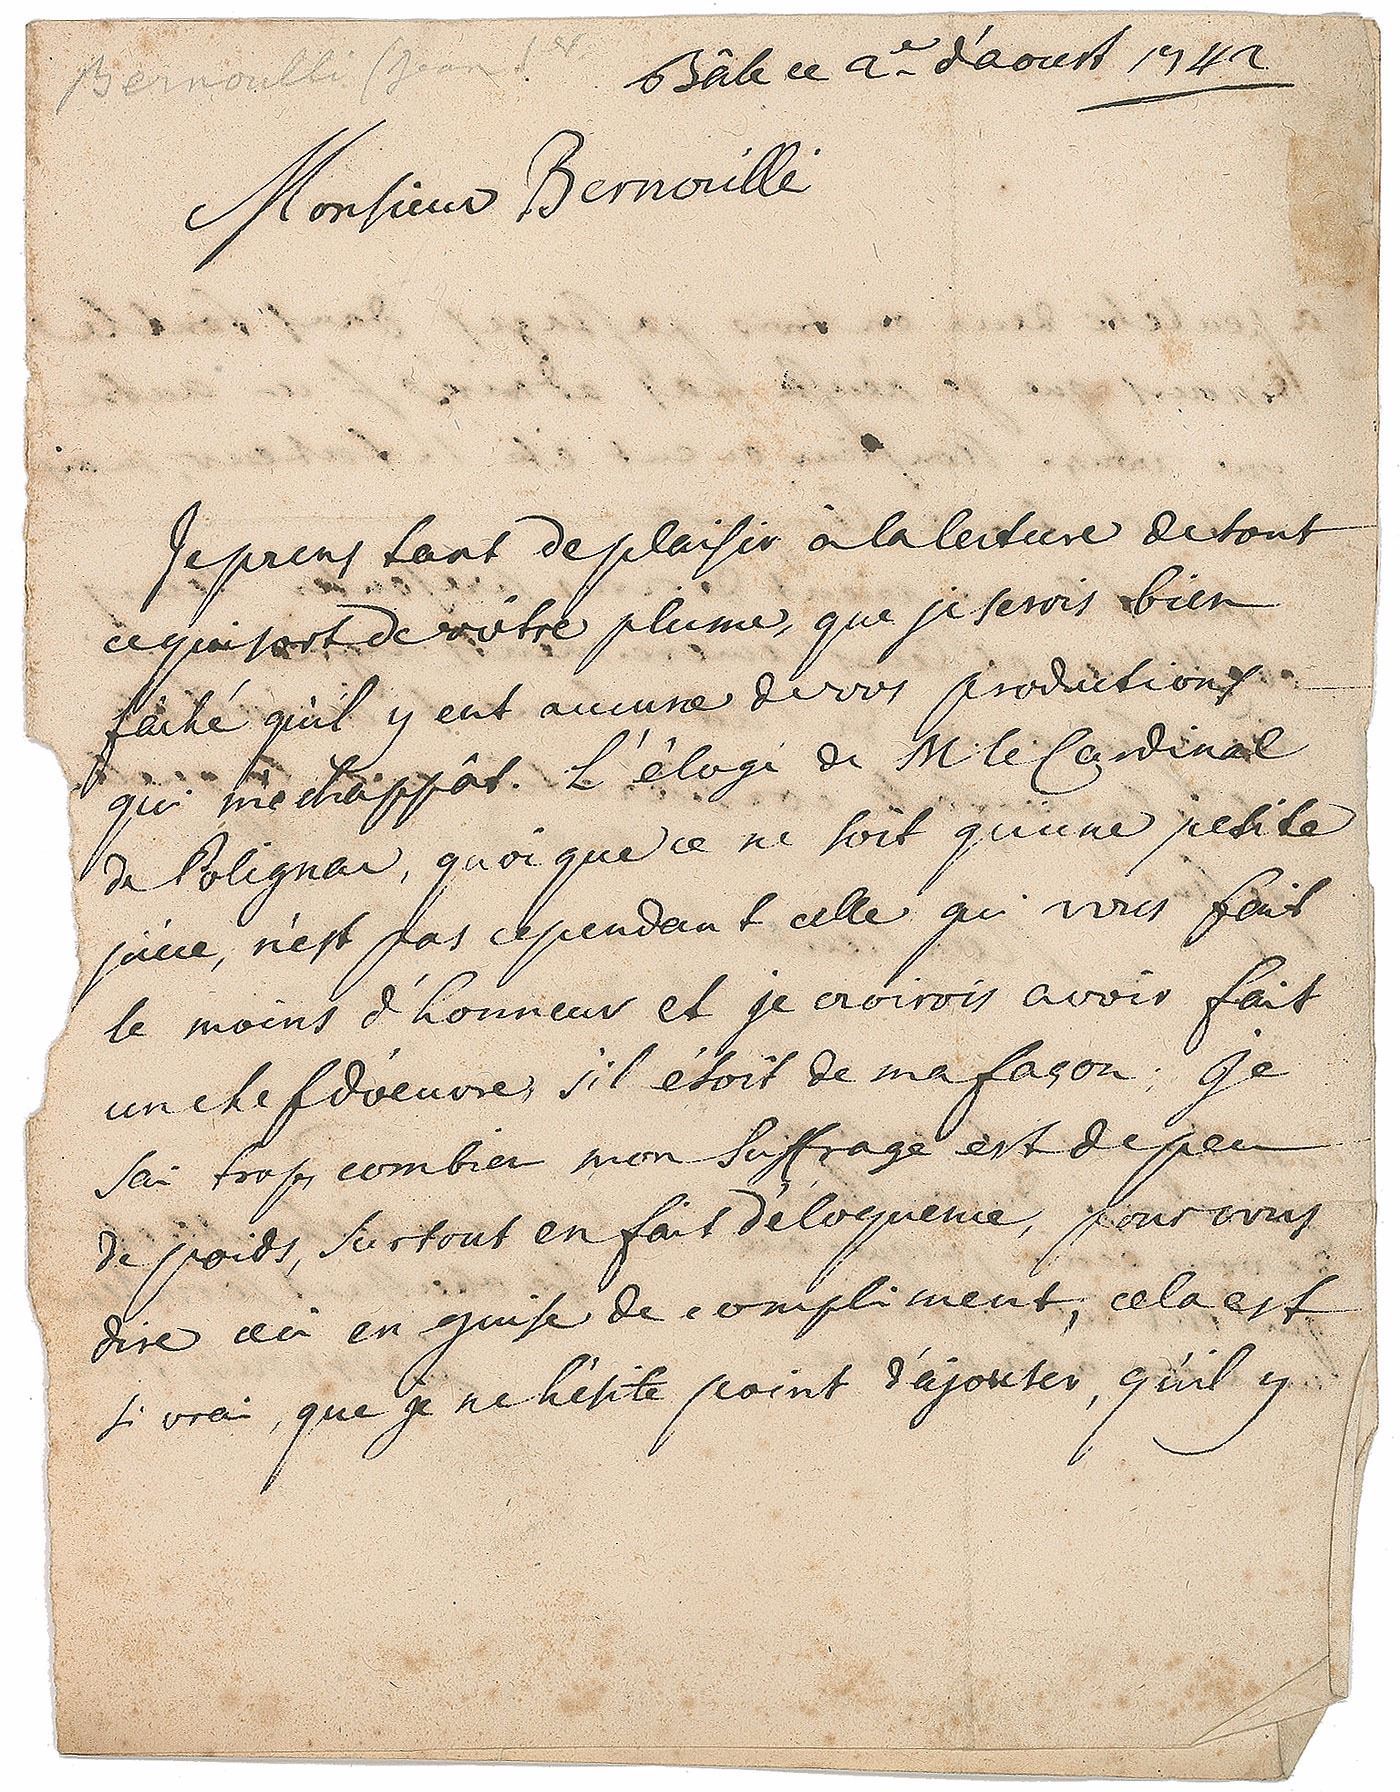 Bernoulli (Jean 1er
Bâle ce 2e d'aoust 1742
Monsieur Bernouilli
Je prens tant de plaisir à la lecture de tout
ce qui sort de vôtre plume, que je serois bien
fâché qu'il y eut aucune de vos productions
qui m'echappât. L'éloge de M le Cardinal
de Polignac, quoique ce ne soit qu'une petite
piéce, n'est pas cependant celle qui vous fait
le moins d'honneur et je croirois avoir fait
un chef d'oeuvre, s'il étoit de ma façon; Je
sai trop, combien mon suffrage est de peu
de poids, surtout en fait d'éloquence, pour vous
dire ceci en guise de compliment; cela est
si vrai, que je ne hésite point d'ajouter, qu'il y